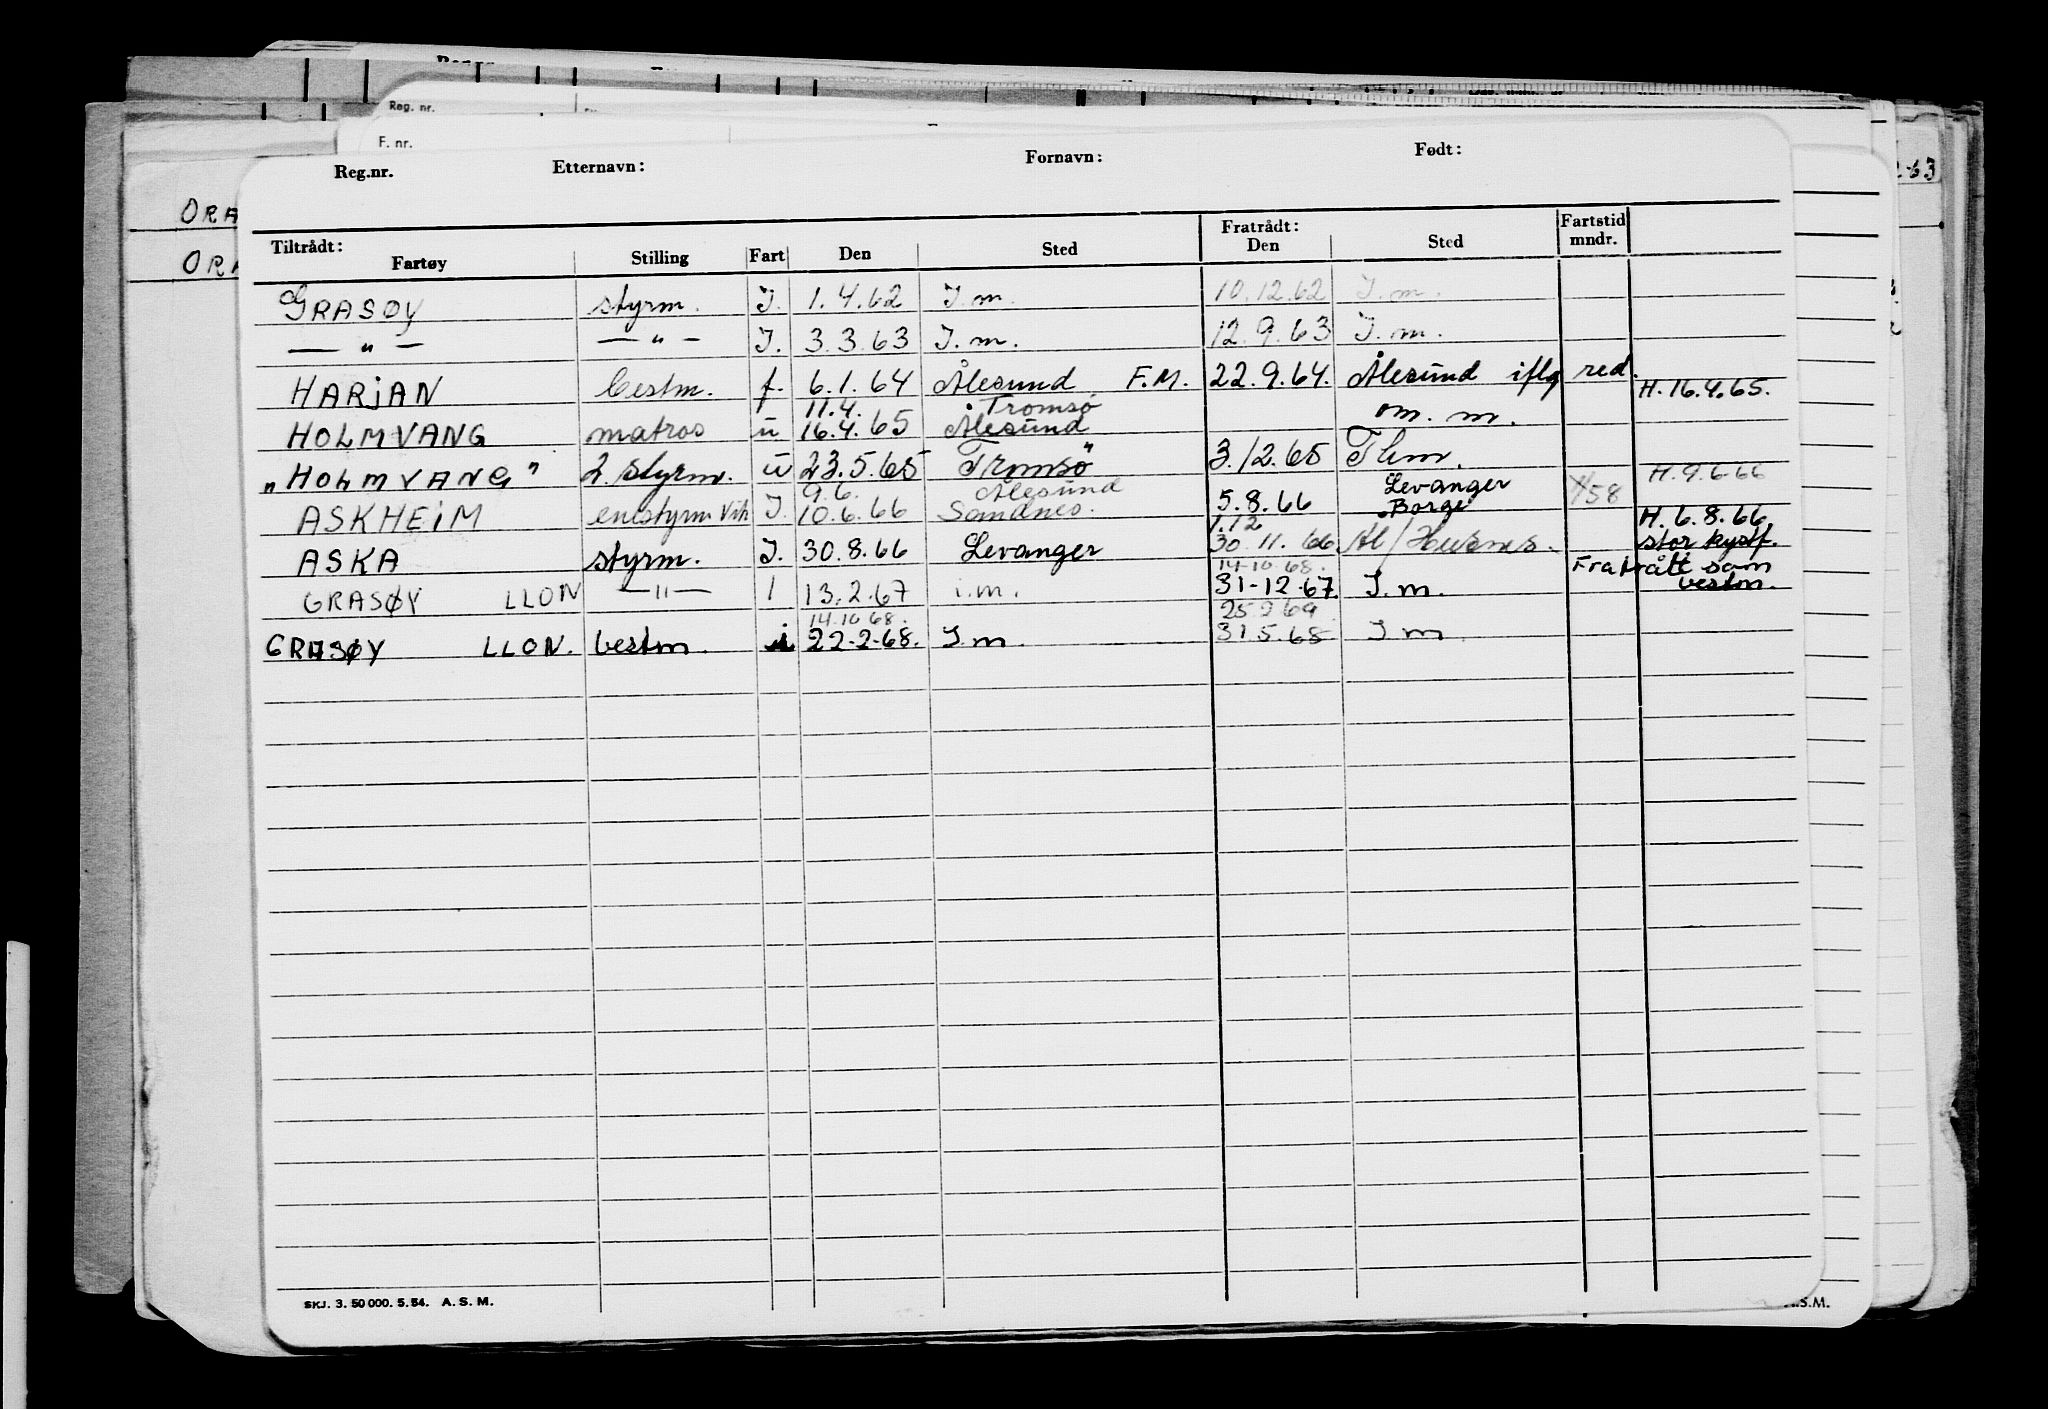 Reg. nr.
F. nr.
Reg.nr. Etternavn: Fornavn: Født:
ORA
ORA
Tiltrådt: Fratrådt: Fartstid
Fartøy Stilling Fart Den Sted Den Sted mndr.
GRASØY styrm. I. 1.4.62 I.m. 10.12.62 I.m.
— " — — " — I. 3.3.63 I.m. 12.9.63 I.m.
HARJAN bestm. f. 6.1.64 Ålesund F.M. 22.9.64. Ålesund iflg red. H.16.4.65.
11.4. Tromsø om. m.
HOLMVANG matros u 16.4.65 Ålesund
"HOLMVANG" 2. styrm. u 23.5.65 Tromsø " 3.12.65 Thm. H.9.6.66
9.6. Ålesund Levanger
ASKHEIM enestyrm I. 10.6.66 Sandnes. 5.8.66 Borge 58
1.12 H. 6.8.66
ASKA styrm. I. 30.8.66 Levanger 30.11.66 Ål/Husnes. stor kystf.
14-10-68. Fratrått som
GRASØY LLON — " — I 13.2.67 i.m. 31-12-67. I.m. bestm.
14.10 68. 25.2 69
GRASØY LLON. bestm. i 22-2-68. I.m. 31.5.68 I.m.
SKJ. 3. 50 000. 5. 54. A. S. M.
.S.M.